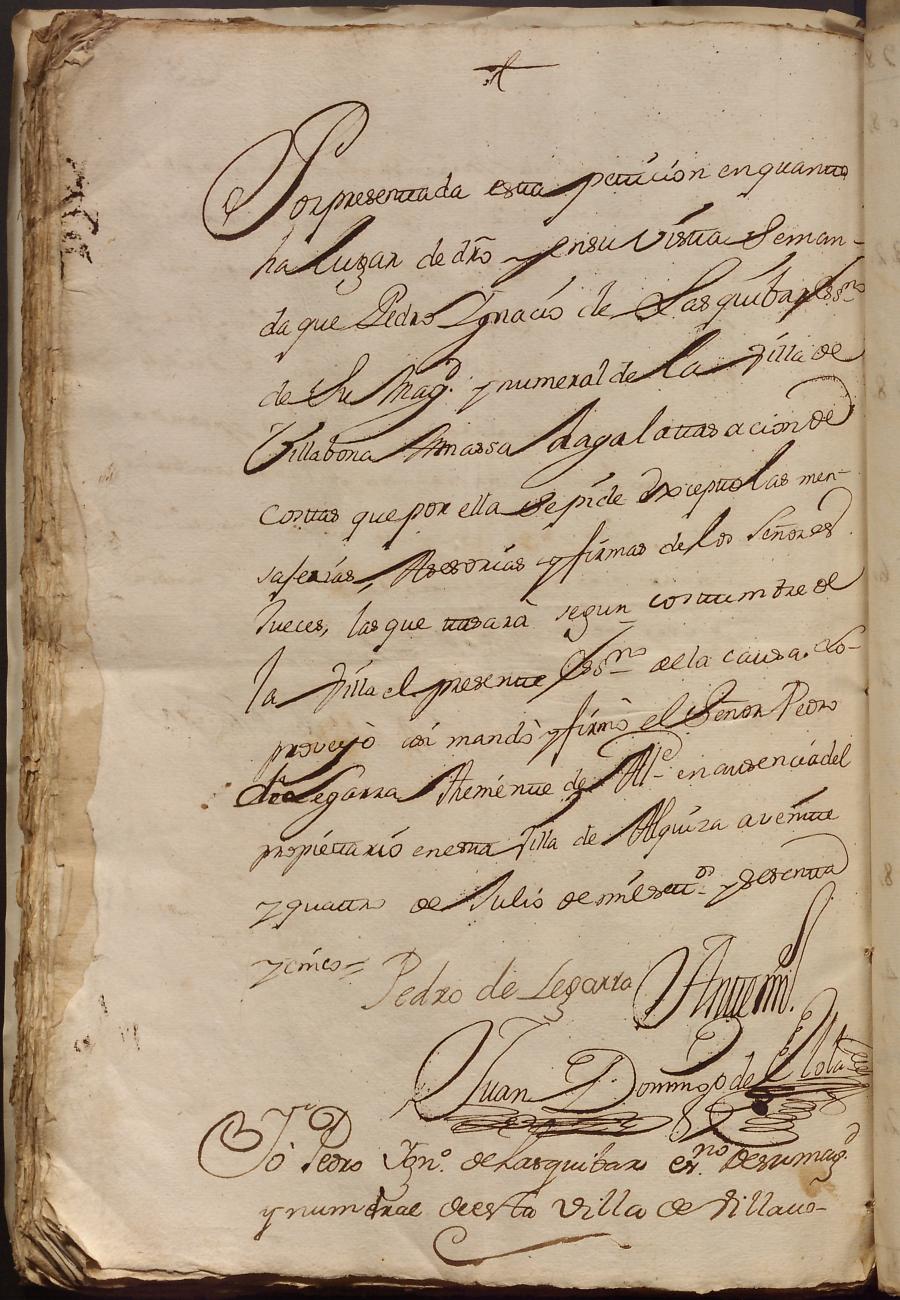 Por presentada esta petición en quanto
ha lugar de dro y en su vista Se man-
da que Pedro Ygnacio de Lasquibar Essno
de Su Magd. y numeral de la Villa de
Villabona Amassa haga la tasacion de
costas que por ella se pide excepto las men-
saferias, Asesorias y firmas de los Señores
Jueces, las que tasarà segun costumbre de
la Villa el presente Essno de la causa. Lo
proveyò asi mandò y firmò el Señor Pedro
de Legarra Theniente de Alle en ausencia del
propietario en esta Villa de Alquiza a veinte
y quatro de Julio de mil settos y sesenta
y cinco=
Pedro de Legarra Antemi.
Juan Domingo de
Yo Pedro Ygno. de Lasquibar esno. de su magd.
y numeral de esta villa de Villavo-